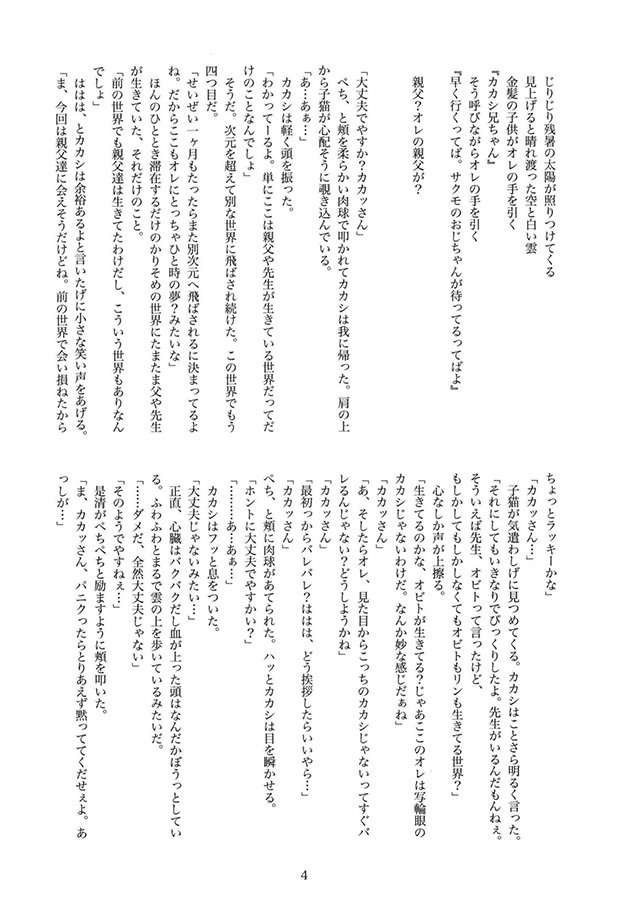 じりじり残暑の太陽が照りつけてくる
見上げると晴れ渡った空と白い雲
金髪の子供がオレの手を引く
『カカシ兄ちゃん』
そう呼びながらオレの手を引く
『早く行くってば。サクモのおじちゃんが待ってるってばよ』
親父？オレの親父が？
「大丈夫でやすか？カカッさん」
ぺち、と頬を柔らかい肉球で叩かれてカカシは我に帰った。肩の上
から子猫が心配そうに覗き込んでいる。
「あ…あぁ…」
カカシは軽く頭を振った。
「わかってーるよ。単にここは親父や先生が生きている世界だってだ
けのことなんでしょ」
そうだ。次元を超えて別な世界に飛ばされ続けた。この世界でもう
四つ目だ。
「せいぜい一ヶ月もたったらまた別次元へ飛ばされるに決まってるよ
ね。だからここもオレにとっちゃひと時の夢？みたいな」
ほんのひととき滞在するだけのかりそめの世界にたまたま父や先生
が生きていた、それだけのこと。
「前の世界でも親父達は生きてたわけだし、こういう世界もありなん
でしょ」
ははは、とカカシは余裕あるよと言いたげに小さな笑い声をあげる。
「ま、今回は親父達に会えそうだけどね。前の世界で会い損ねたから
ちょっとラッキーかな」
「カカッさん…」
子猫が気遣わしげに見つめてくる。カカシはことさら明るく言った。
「それにしてもいきなりでびっくりしたよ。先生がいるんだもんねぇ。
そういえば先生、オビトって言ったけど、
もしかしてもしかしなくてもオビトもリンも生きてる世界？」
心なしか声が上擦る。
「生きてるのかな、オビトが生きてる？じゃあここのオレは写輪眼の
カカシじゃないわけだ。なんか妙な感じだぁね」
「カカッさん」
「あ、そしたらオレ、見た目からこっちのカカシじゃないってすぐバ
レるんじゃない？どうしようかね」
「カカッさん」
「最初っからバレバレ？ははは、どう挨拶したらいいやら…」
「カカッさん」
ぺち、と頬に肉球があてられた。ハッとカカシは目を瞬かせる。
「ホントに大丈夫でやすかい？」
「………あ…あぁ…」
カカシはフッと息をついた。
「大丈夫じゃないみたい…」
正直、心臓はバクバクだし血が上った頭はなんだかぼうっとしてい
る。ふわふわとまるで雲の上を歩いているみたいだ。
「……ダメだ、全然大丈夫じゃない」
「そのようでやすねぇ…」
是清がぺちぺちと励ますように頬を叩いた。
「ま、カカッさん、パニクったらとりあえず黙っててくだせぇよ。あ
っしが…」
4